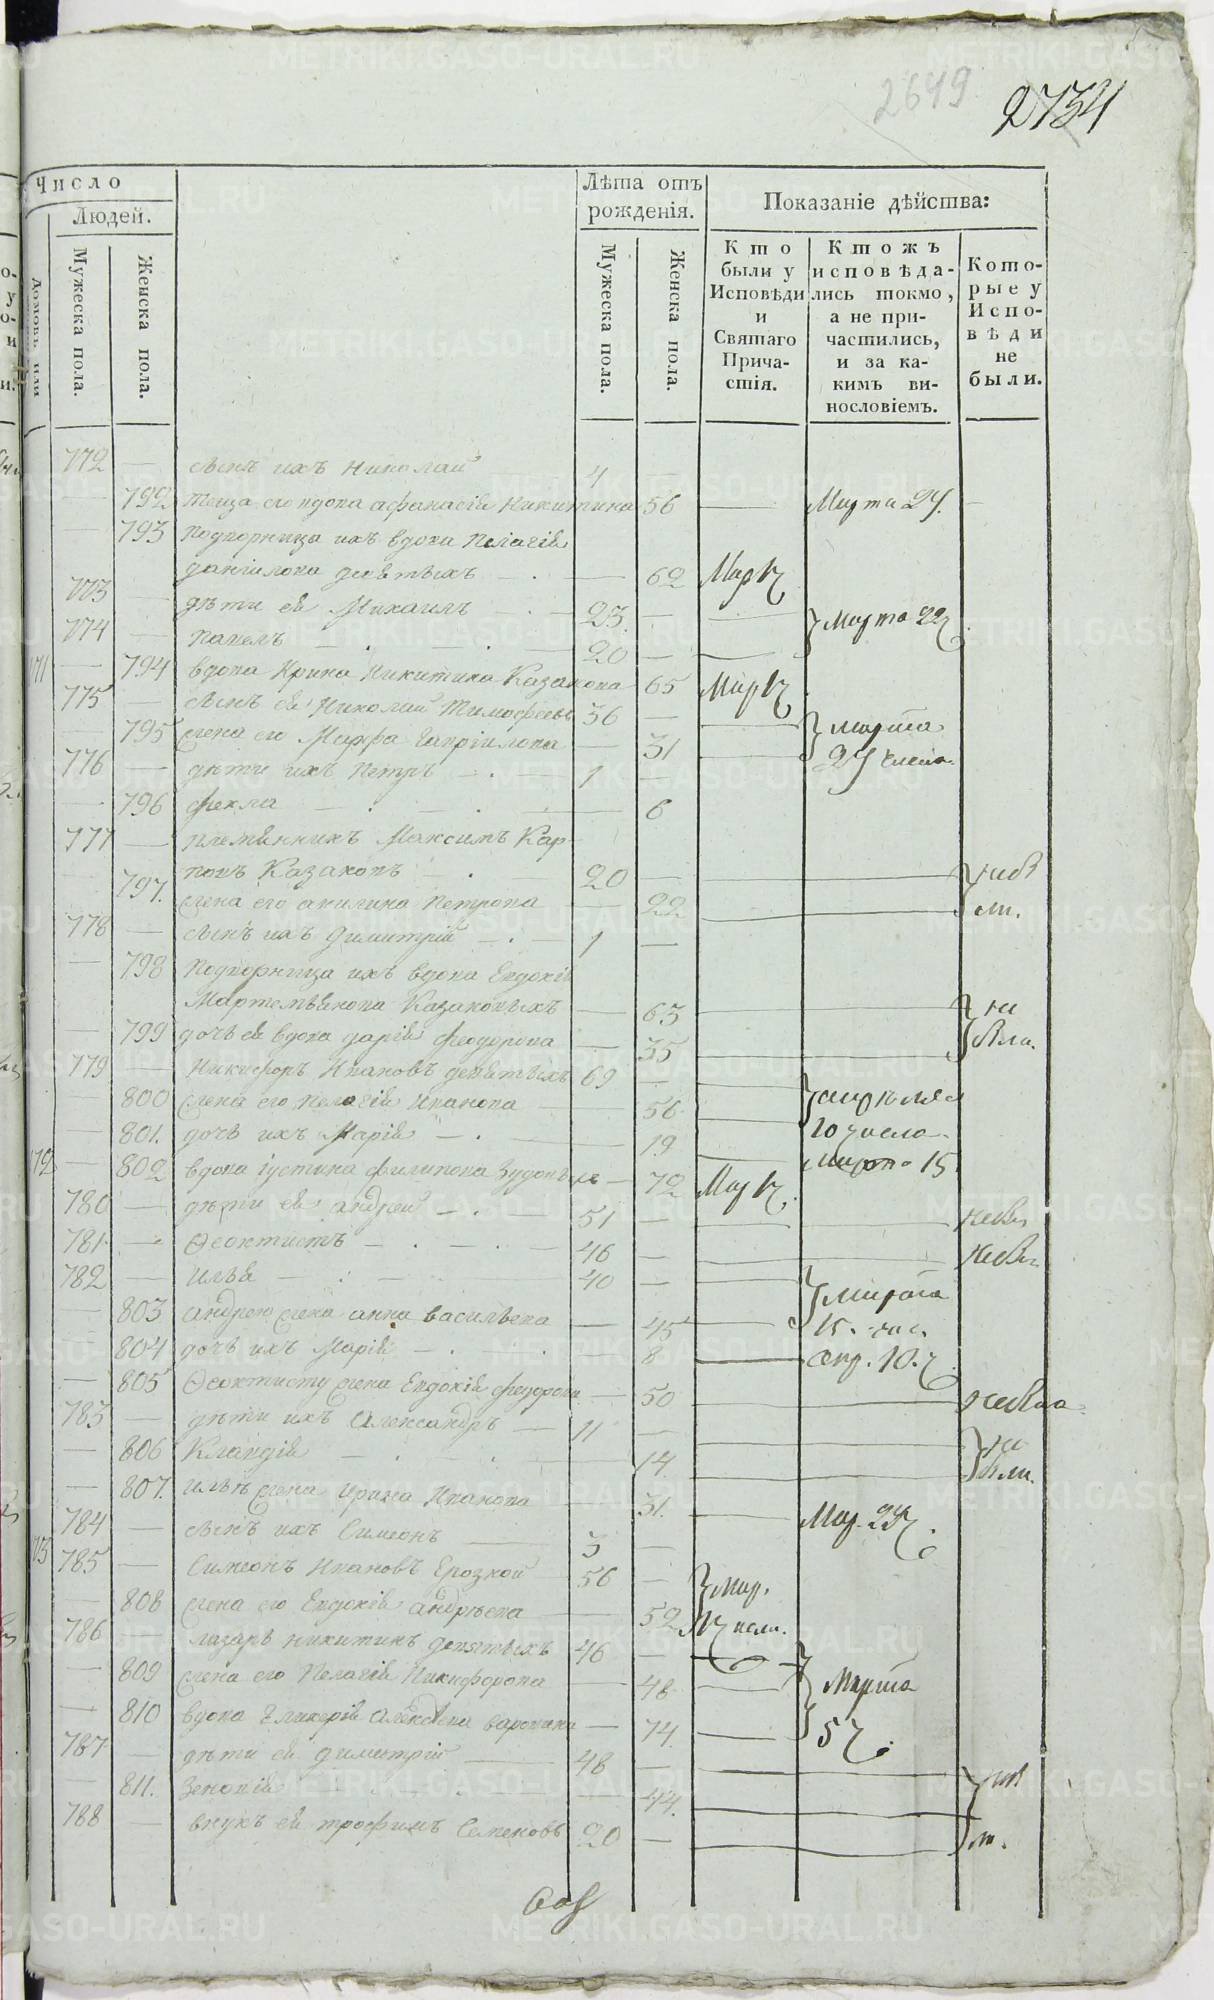 2649
2734
Число
Людей.
Домовъ или
Мужеска пола.
Женска пола.
Лѣта отъ рожденія.
Мужеска пола.
Женска пола.
Показаніе дѣйства:
Кто были у Исповѣди и Святаго Причастія.
Ктожъ исповѣдались токмо, а не причастились, и за какимъ винословіемъ.
Которые у Исповѣди не были.
772 — сынъ ихъ Николай 4 —
— 792 теща его вдова Афанасія Никитина 56 — Марта 29. —
— 793 подворница ихъ вдова Пелагія
данилова девятыхъ — 62 Мар 17
773 — дѣти ея Михаилъ — 23. — — Марта 22
774 — Павелъ — 20 — —
171 — 794 вдова Ирина Никитина Казакова 65 Мар 17
775 — сынъ ея Николай Тимофеевъ 36 — — Марта
— 795 жена его Марфа Гаврилова — 31 — 29 числа
776 — дѣти ихъ Петръ — 1 —
— 796 Фекла — 6
777 — племянникъ Максимъ Кар-
повъ Казаковъ — 20 — —
— 797. жена его Акилина Петрова — 22 —
778 — сынъ ихъ Димитрій — 1 —
— 798 подворница ихъ вдова Евдокія
Мартемьянова Казаковыхъ — 63 — не
— 799 дочь ея вдова дарія Феодорова — 35 — была.
779 — Никифоръ Ивановъ девятыхъ 69 — —
— 800 жена его Пелагія Иванова — 56 — апреля
— 801. дочь ихъ Марія — 19 10 число.
172 — 802 вдова Іустина Филипова Зудовыхъ — 72 Мар 17. Марта 15
780 — дѣти ея Андрей — 51 — — —
781 — Ѳеоктистъ — 46 — — —
782 — Илья — 40 — — Марта
— 803 Андрею жена Анна Васильева — 45 — 15. чис.
— 804 дочь ихъ Марія — 8 — Апр. 10. ч
— 805 Ѳеоктисту жена Евдокія Федорова — 50 — не была
783 — дѣти ихъ Александръ — 11 — — не
— 806 Клавдія — 14. — были.
— 807. Ильи жена Ирина Иванова — 31. — Мар. 29
784 — сынъ ихъ Симеонъ 3 —
173 785 — Симеонъ Ивановъ 56 — Мар.
— 808 жена его Евдокія Андреева — 52 17 числ.
786 — Лазарь Никитинъ девятыхъ 46 — —
— 809 жена его Пелагія Никифорова — 48 — Марта
— 810 вдова Гликерія Алексѣева — 74. — 5 ч.
787 — дѣти ея Димитрій — 48 — —
— 811. Зеновія — 44. —
788 — внукъ ея Трофимъ Семеновъ 20 — —
METRIKI.GASO-URAL.RU